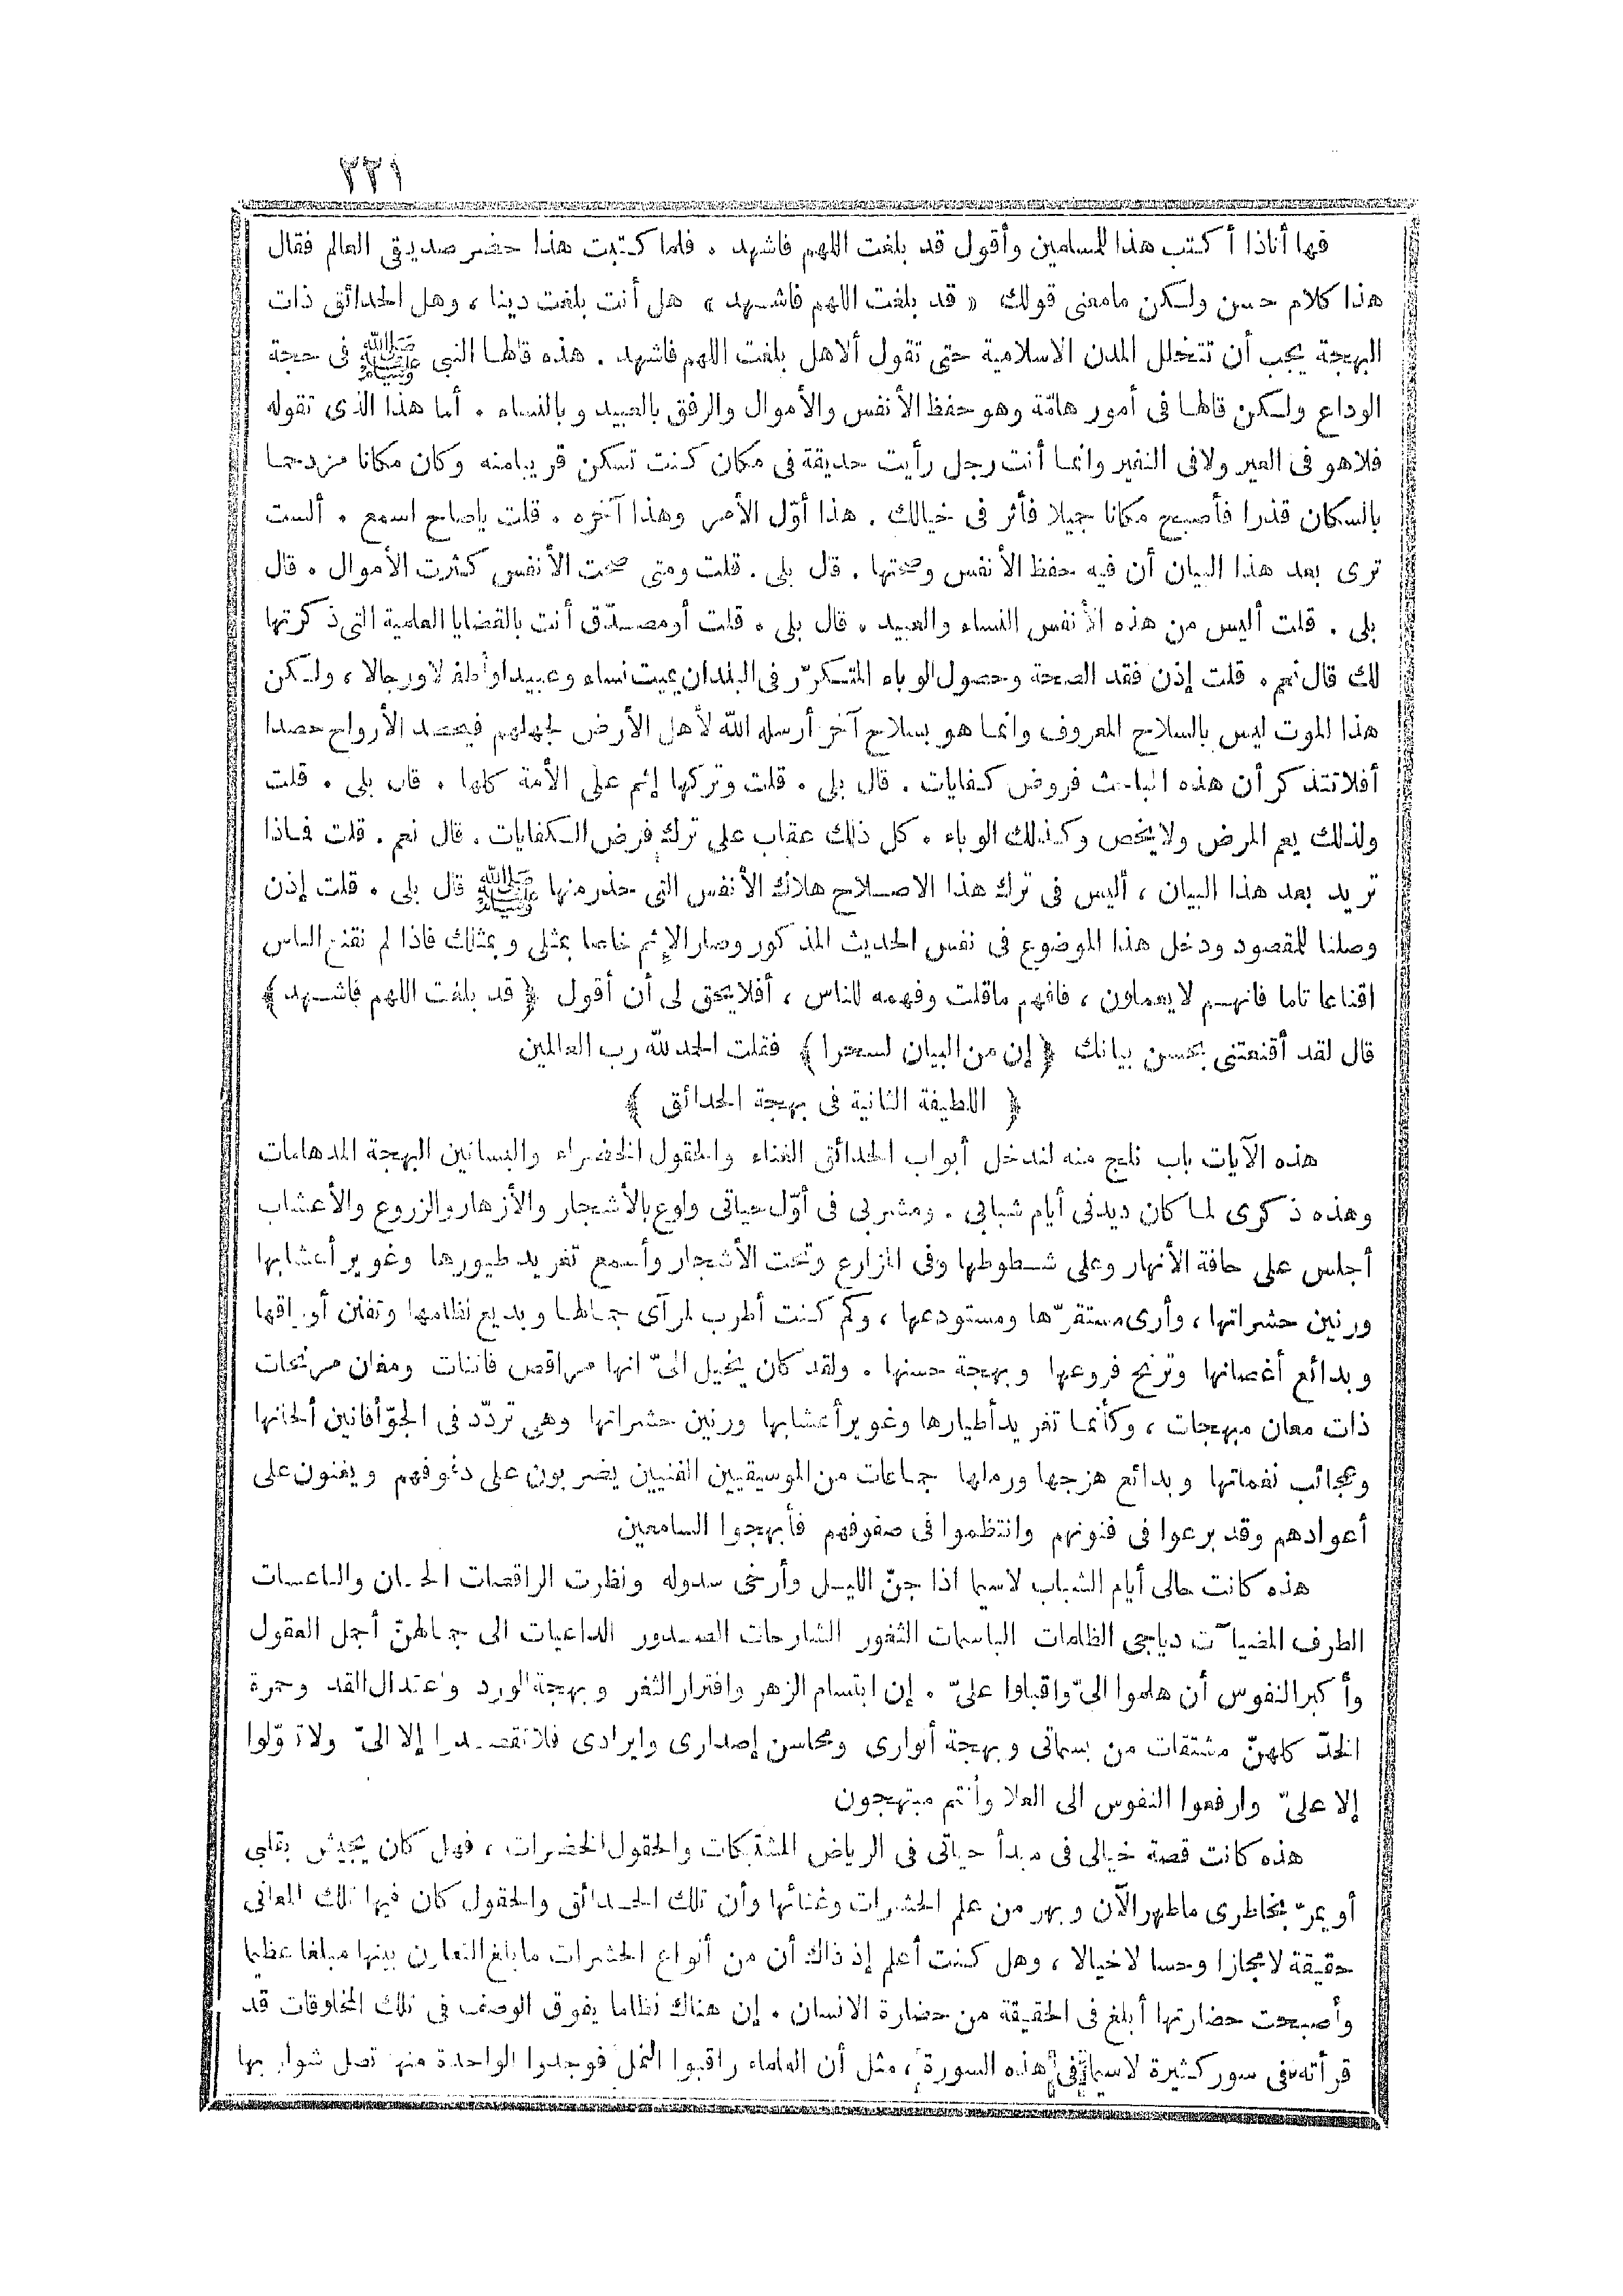 ٢٢١
فها أناذا أكتب هذا للمسلمين وأقول قد بلغت اللهم فاشهد . فلما كتبت هذا حضر صديقى العالم فقال
هذا كلام حسن ولكن مامعنى قولك « قد بلغت اللهم فاشهد » هل أنت بلغت دينا ، وهل الحدائق ذات
البهجة يجب أن تتخلل المدن الاسلامية حتى تقول ألاهل بلغت اللهم فاشهد . هذه قالها النبى ﷺ فى حجة
الوداع ولكن قالها فى أمور هامّة وهو حفظ الأنفس والأموال والرفق بالعبيد وبالنساء . أما هذا الذى تقوله
فلاهو فى العير ولافى النفير وانما أنت رجل رأيت حديقة فى مكان كنت تسكن قريبامنه وكان مكانا مزدحما
بالسكان قذرا فأصبح مكانا جميلا فأثر فى خيالك . هذا أوّل الأمر وهذا آخره . قلت ياصاح اسمع . ألست
ترى بعد هذا البيان أن فيه حفظ الأنفس وصحتها . قال بلى . قلت ومتى صحت الأنفس كثرت الأموال . قال
بلى . قلت أليس من هذه الأنفس النساء والعبيد . قال بلى . قلت أومصدّق أنت بالقضايا العلمية التى ذكرتها
لك قال نعم . قلت إذن فقد الصحة وحصول الوباء المتكرّر فى البلدان يميت نساء وعبيدا وأطفالا ورجالا ، ولكن
هذا الموت ليس بالسلاح المعروف وانما هو بسلاح آخر أرسله الله لأهل الأرض لجهلهم فيحصد الأرواح حصدا
أفلاتتذكر أن هذه المباحث فروض كفايات . قال بلى . قلت وتركها إثم على الأمة كلها . قال بلى . قلت
ولذلك يعم المرض ولايخص وكذلك الوباء . كل ذلك عقاب على ترك فرض الكفايات . قال نعم . قلت فماذا
تريد بعد هذا البيان ، أليس فى ترك هذا الاصلاح هلاك الأنفس التى حذرمنها ﷺ قال بلى . قلت إذن
وصلنا للمقصود ودخل هذا الموضوع فى نفس الحديث المذكور وصار الإثم خاصا بمثلى وبمثلك فاذا لم نقنع الناس
اقناعا تاما فانهم لايعملون ، فافهم ماقلت وفهمه للناس ، أفلايحق لى أن أقول ﴿ قد بلغت اللهم فاشهد ﴾
قال لقد أقنعتنى بحسن بيانك ﴿ إن من البيان لسحرا ﴾ فقلت الحمد لله رب العالمين
﴿ اللطيفة الثانية فى بهجة الحدائق ﴾
هذه الآيات باب نلج منه لندخل أبواب الحدائق الغناء والحقول الخضراء والبساتين البهجة المدهامات
وهذه ذكرى لما كان ديدنى أيام شبابى . ومشربى فى أوّل حياتى ولوع بالأشجار والأزهار والزروع والأعشاب
أجلس على حافة الأنهار وعلى شطوطها وفى المزارع وتحت الأشجار وأسمع تغريد طيورها وغوير أعشابها
ورنين حشراتها ، وأرى مستقرّها ومستودعها ، وكم كنت أطرب لمرآى جمالها وبديع نظامها وتفنن أوراقها
وبدائع أغصانها وترنح فروعها وبهجة حسنها . ولقد كان يخيل الىّ انها مراقص فاتنات ومغان مرنحات
ذات معان مبهجات ، وكأنما تغريد أطيارها وغوير أعشابها ورنين حشراتها وهى تردّد فى الجوّ أفانين ألحانها
وعجائب نغماتها وبدائع هزجها ورملها جماعات من الموسيقيين الفنيين يضربون على دفوفهم ويغنون على
أعوادهم وقد برعوا فى فنونهم وانتظموا فى صفوفهم فأبهجوا السامعين
هذه كانت حالى أيام الشباب لاسيما اذا جنّ الليل وأرخى سدوله ونظرت الراقصات الحسان والناعسات
الطرف المضيآت دياجى الظلمات الباسمات الثغور الشارحات الصدور الداعيات الى جمالهنّ أجمل العقول
وأكبر النفوس أن هلموا الىّ واقبلوا علىّ . إن ابتسام الزهر وافترار الثغر وبهجة الورد واعتدال القد وحمرة
الخدّ كلهنّ مشتقات من بسماتى وبهجة أنوارى ومحاسن إصدارى وايرادى فلاتقصدوا إلا الىّ ولاتعوّلوا
إلا علىّ وارفعوا النفوس الى العلا وأنتم مبتهجون
هذه كانت قصة خيالى فى مبدأ حياتى فى الرياض المشتبكات والحقول الخضرات ، فهل كان يجيش بقلبى
أو يمرّ بخاطرى ماظهر الآن وبهر من علم الحشرات وغنائها وأن تلك الحدائق والحقول كان فيها تلك المعانى
حقيقة لامجازا وحسا لاخيالا ، وهل كنت أعلم إذ ذاك أن من أنواع الحشرات مابلغ التعاون بينها مبلغا عظيما
وأصبحت حضارتها أبلغ فى الحقيقة من حضارة الانسان . إن هناك نظاما يفوق الوصف فى تلك المخلوقات قد
قرأته فى سور كثيرة لاسيما فى هذه السورة ، مثل أن العلماء راقبوا النمل فوجدوا الواحدة منها تصل شواربها